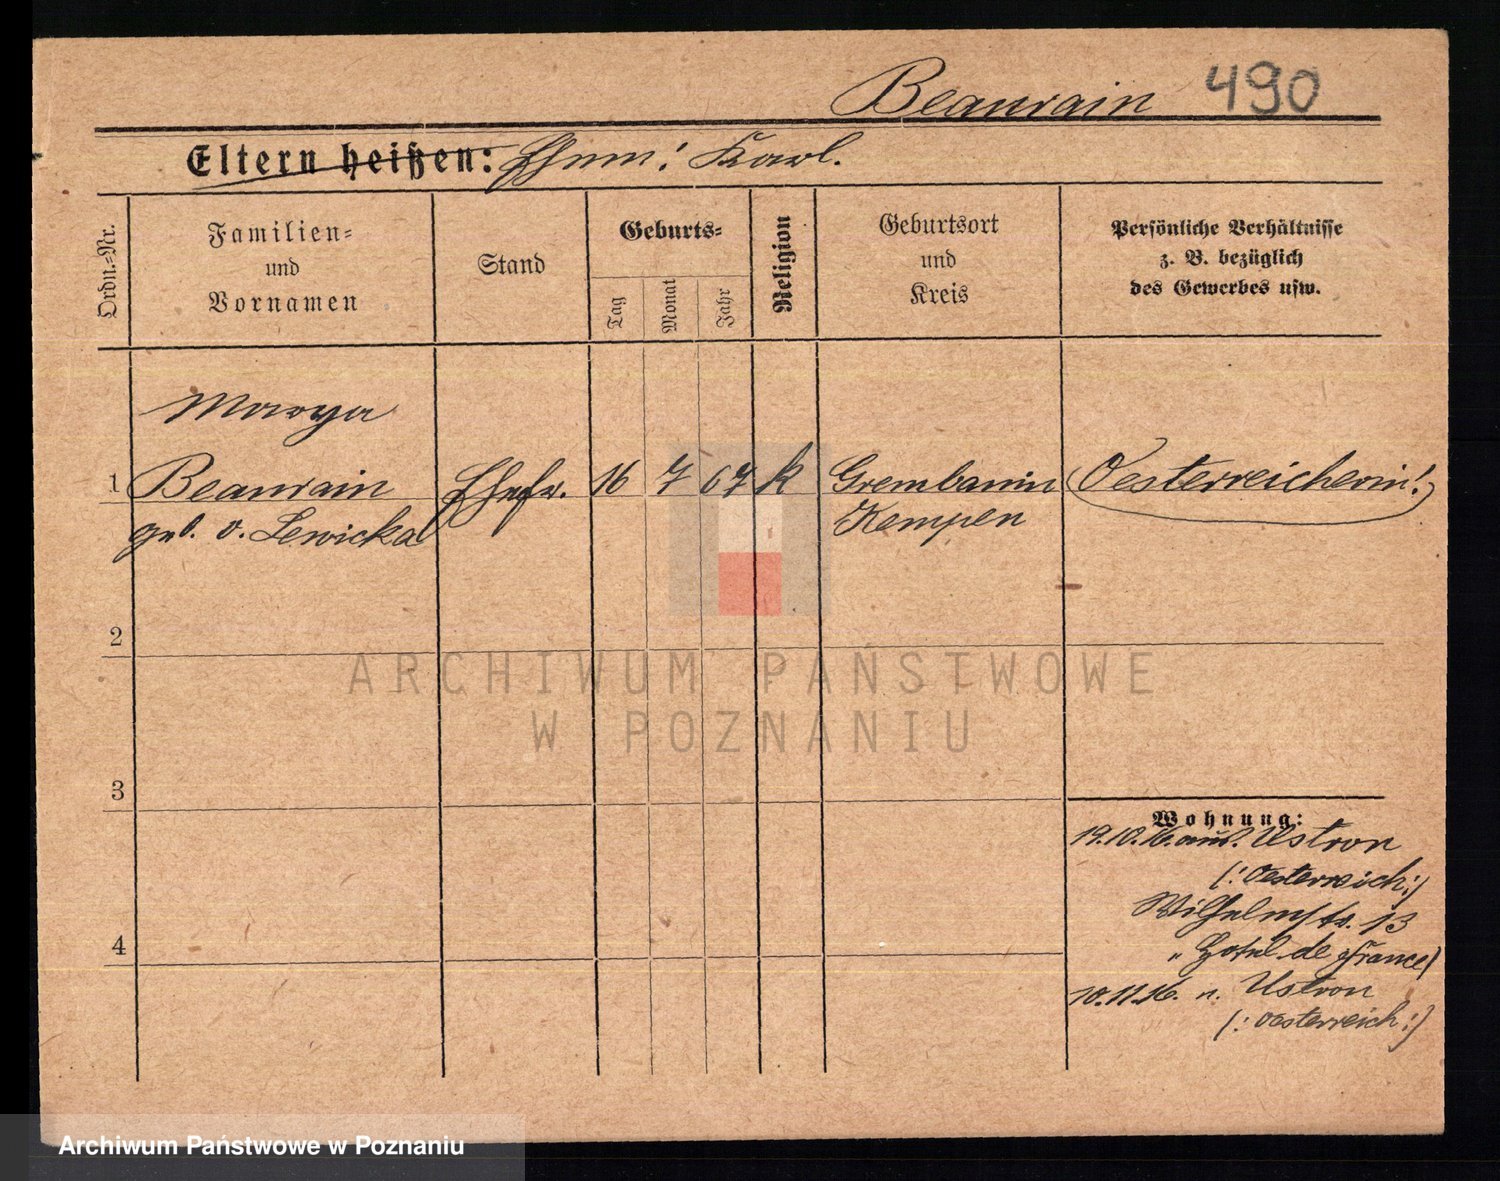 Beaurain 490
Eltern heißen: Ehem: Karl.
Ordn.-Nr.
Familien-
und
Vornamen
Stand
Geburts-
Tag
Monat
Jahr
Religion
Geburtsort
und
Kreis
Persönliche Verhältnisse
z. B. bezüglich
des Gewerbes usw.
Marya
1 Beaurain Ehefr. 16 7 67 k Grembanin Oesterreicherin!
geb. v. Lewicka Kempen
2
3
4
Wohnung:
19.10.16. aus. Ustron
(: Oesterreich:)
Wilhelmstr. 13
„ Hotel de France)
10.11.16. n. Ustron
(: Oesterreich:)
ARCHIWUM PAŃSTWOWE
W POZNANIU
Archiwum Państwowe w Poznaniu